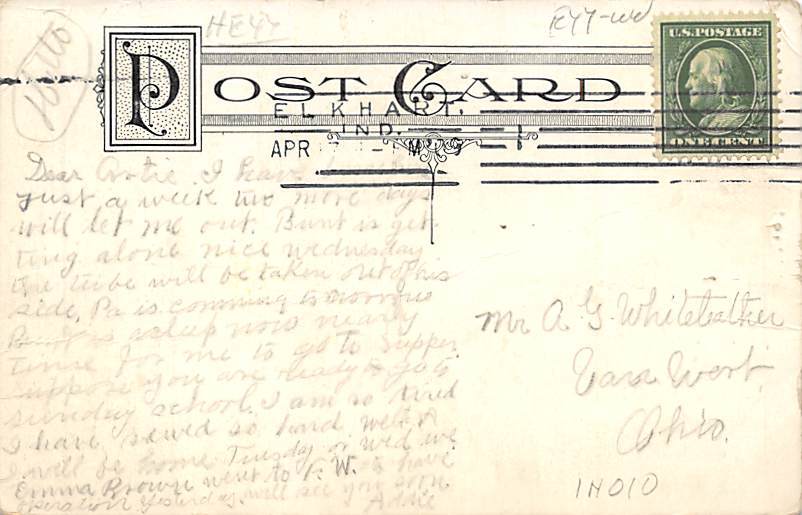 Hello
HEYY
EYY-wd
POST CARD
U.S. POSTAGE
ONE CENT
ELKHART.
IND.
APR
Dear Artie. I have
just a week two more days
will let me out. Burt is get-
ting along nice wednesday
the tube will be taken out of his
side. Pa is comming tomorrow
Burt is asleep now nearly
time for me to go to supper
suppose you are ready to go to
sunday school. I am so tired
I have sewed so hard. well
I will be home Tuesday or wed eve
Emma Brown went to F. W. to have
operation yesterday. will see you soon
Addie
Mr A. G. Whiteleather
Van Wert.
Ohio.
INOIO